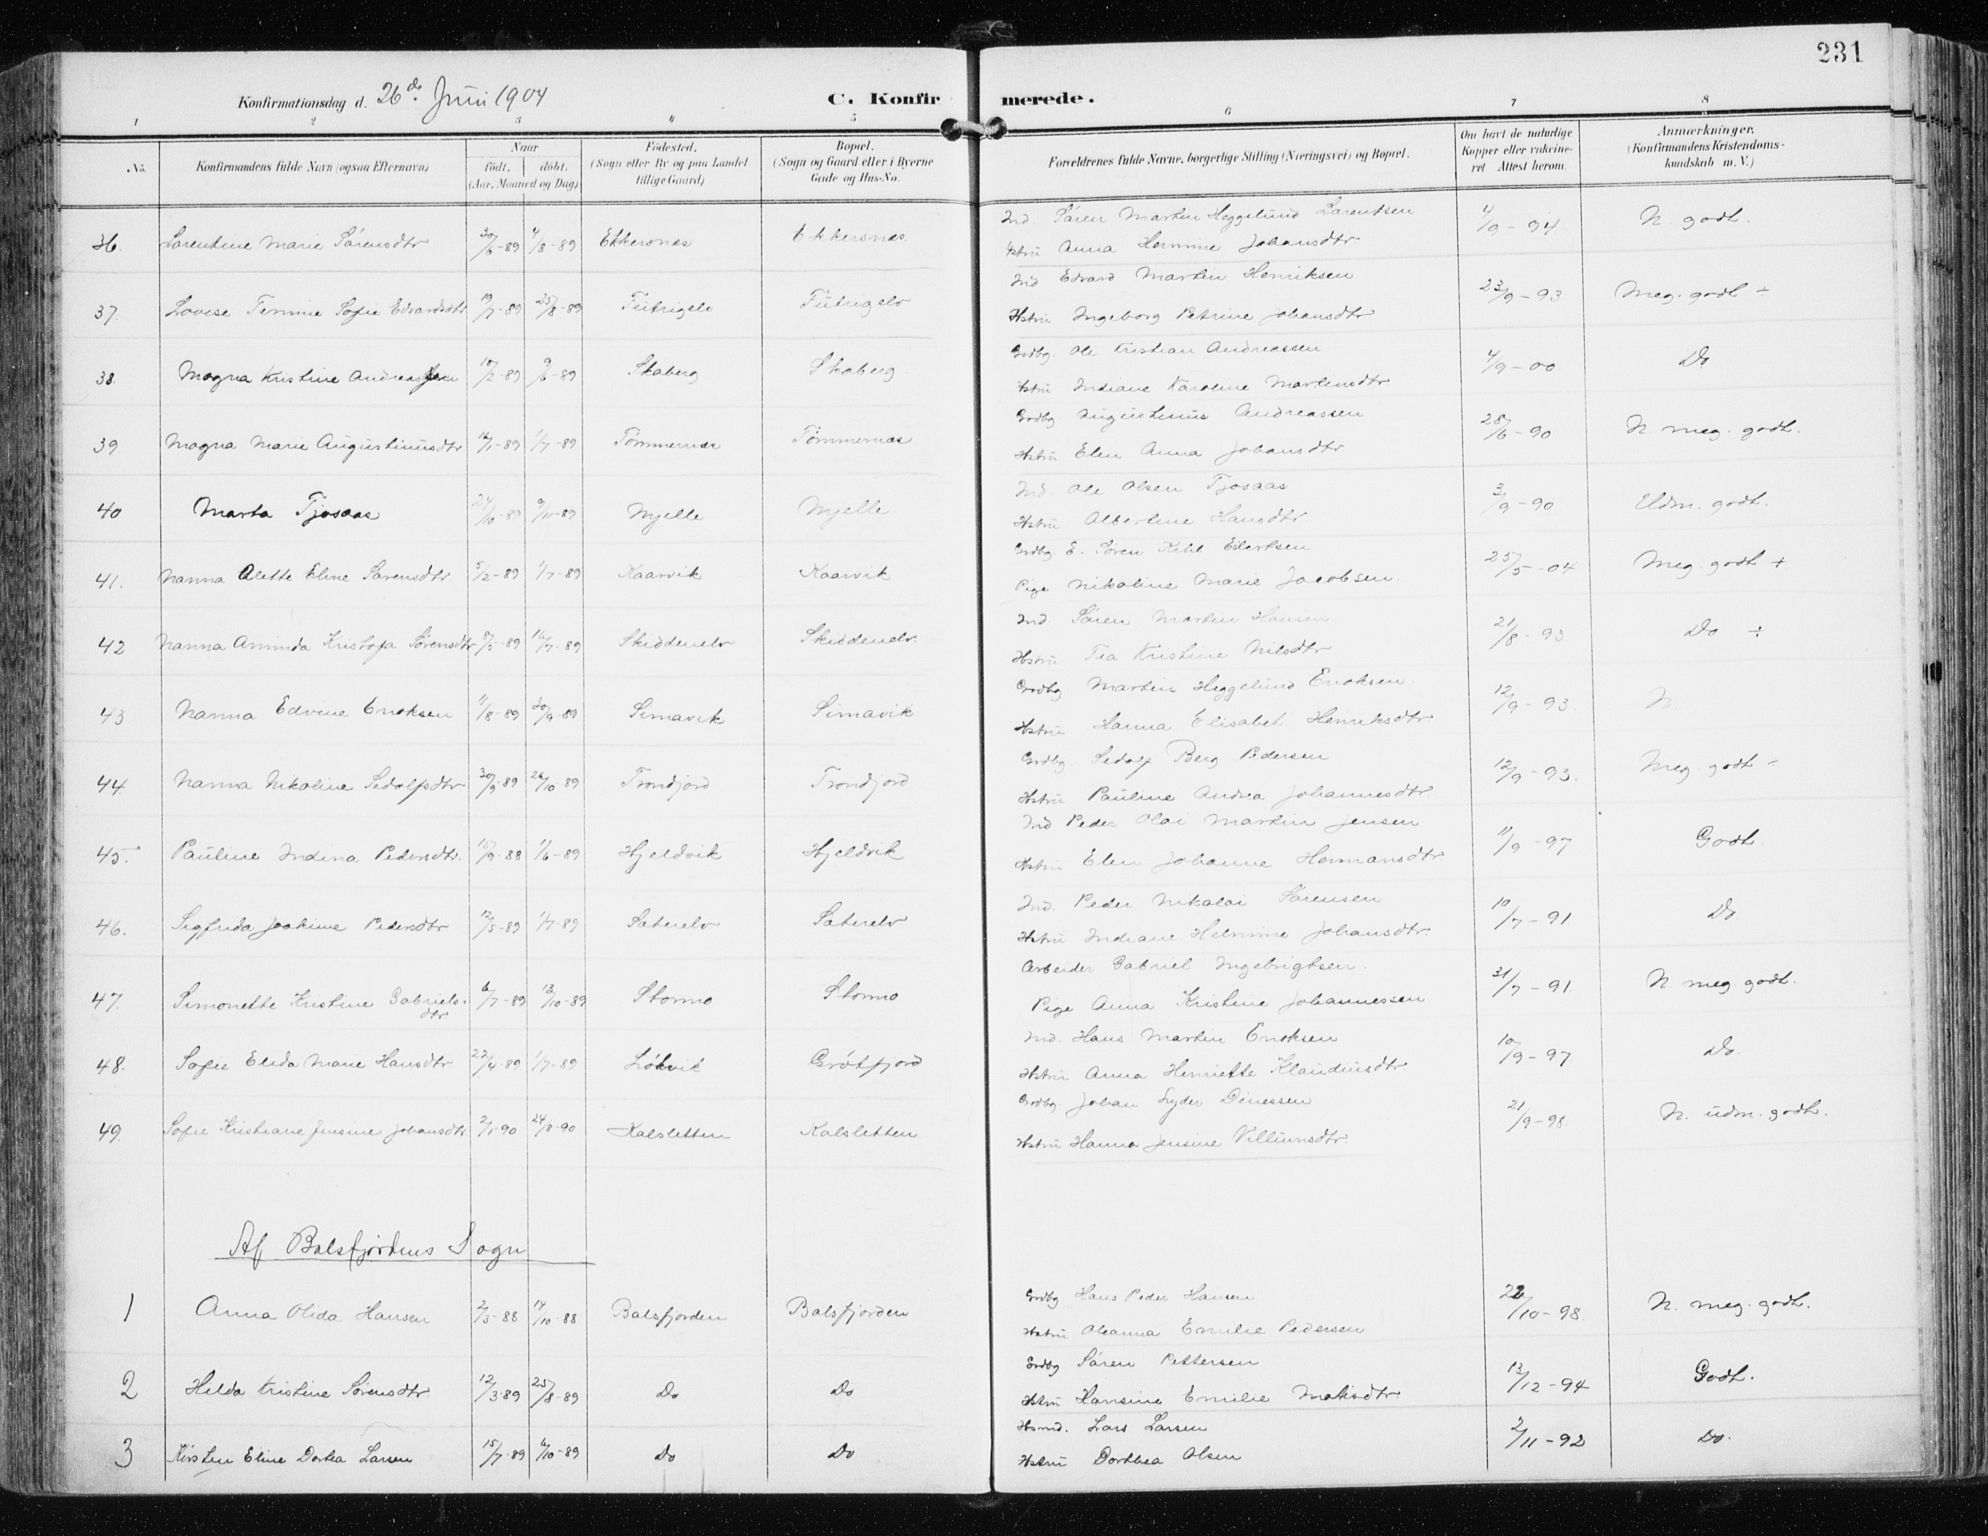 231
Konfirmationsdag d. 26de Juni 1904 C. Konfirmerede.
1 2 3 4 5 6 7 8
No. Konfirmandens fulde Navn (ogsaa Efternavn) Naar født. døbt. (Aar, Maaned og Dag) Fødested. (Sogn eller By og paa Landet tillige Gaard) Bopæl. (Sogn og Gaard eller i Byerne Gade og Hus-No. Forældrenes fulde Navne, borgerlige Stilling (Næringsvei) og Bopæl. Om havt de naturlige Kopper eller vakcineret Attest herom. Anmærkninger. (Konfirmandens Kristendomskundskab m. V.)
36. Larentine Marie Sørensdtr 30/6-89 4/8-89 Ekkersnes Ekkersnes Ind. Søren Martin Heggelund Larentsen 4/9-94 N. godt.
Hstru Anna Hermine Johansdtr
37. Lovise Femmie Sofie Edvardsdtr 19/7-89 25/8-89 Futrigelv Futrigelv Ind Edvard Martin Henriksen 23/9-93 Meg. godt ÷
Hstru Ingeborg Petrine Johansdtr
38. Magna Kristine Andreassen 18/2-89 9/6-89 Skaberg Skaberg Grdbg. Ole Kristian Andreassen 4/9-00 Do
Hstru Indiane Karoline Martinsdtr
39 Magna Marie Augustinusdtr 16/1-89 1/7-89 Tømmernæs Tømmernæs Grdbg Augustinus Andreassen 28/6-90 N meg. godt.
Hstru Elen Anna Johansdtr
40 Marta Tjosaas 24/10-89 9/11-89 Mjelle Mjelle Ind. Ole Olsen Tjosaas 3/9-90 Udm. godt.
Hstru Albertine Hansdtr
41. Nanna Alette Eline Sørensdtr 5/2-89 1/7-89 Kaarvik Kaarvik Grdbg. E. Søren Kihl Edvartsen 25/5-04 Meg. godt +
Pige Nikoline Marie Jacobsen.
42 Nanna Aminda Kristofa Sørensdtr 8/5-89 16/7-89 Skiddenelv Skiddenelv. Ind. Søren Martin Hansen 21/8-93 Do ÷
Hstru Tea Kristine Nilsdtr
43 Nanna Edvine Enoksen 11/8-89 30/9-89 Simavik Simavik Grdbg Martin Heggelund Enoksen. 12/9-93 N.
Hstru Hanna Elisabet Henriksdtr
44. Nanna Nikoline Sedolfsdtr 30/9-89 26/10-89 Trondjord Trondjord Grdbg. Sedolf Berg Pedersen 12/9-93. Meg. godt ÷
Hstru Pauline Andrea Johannesdtr.
45. Pauline Indina Pedersdtr. 15/9-88 1/6-89 Hjeldvik Hjeldvik Ind Peder Olai Martin Jensen 11/9-97 Godt.
Hstru Elen Johanne Hermansdtr
46. Sigfrida Joakime Pedersdtr 12/5-89 1/7-89 Saterelv Saterelv Ind. Peder Nikolai Sørensen 10/7-91 Do
Hstru Indiane Helmine Johansdtr.
47. Simonette Kristine Gabrielsdtr. 6/7-89 13/10-89 Stormo Stormo Arbeider Gabriel Ingebrigtsen. 31/7-91 N meg godt.
Pige Anna Kristine Johannessen
48. Sofie Elida Marie Hansdtr 22/4-89 1/7-89 Løkvik Grøtfjord Ind. Hans Martin Enoksen 10/9-97 Do.
Hstru Anna Henriette Klaudiusdtr
49. Sofie Kristiane Jensine Johansdtr 2/1-90 24/8-90 Kalsletten Kalsletten Grdbg. Johan Lyder Dinessen 21/9-98. N. udm. godt.
Hstru Hanna Jensine Villiumsdtr.
Af Balsfjordens Sogn
1 Anna Olida Hansen 2/3-88 14/10-88 Balsfjorden Balsfjorden Grdbg Hans Peder Hansen 22/10-98 N. meg. godt.
Hstru Oleanna Emilie Pedersen
2 Hilda Kristine Sørensdtr. 12/3-89 25/8-89 Do Do Grdbg Søren Pettersen 13/12-94 Godt.
Hstru Hansine Emilie Matisdtr
3 Kirsten Eline Dortea Larsen 15/7-89 6/10-89 Do Do Hsmd. Lars Larsen 2/11-92 Do.
Hstru Dorthea Olsen